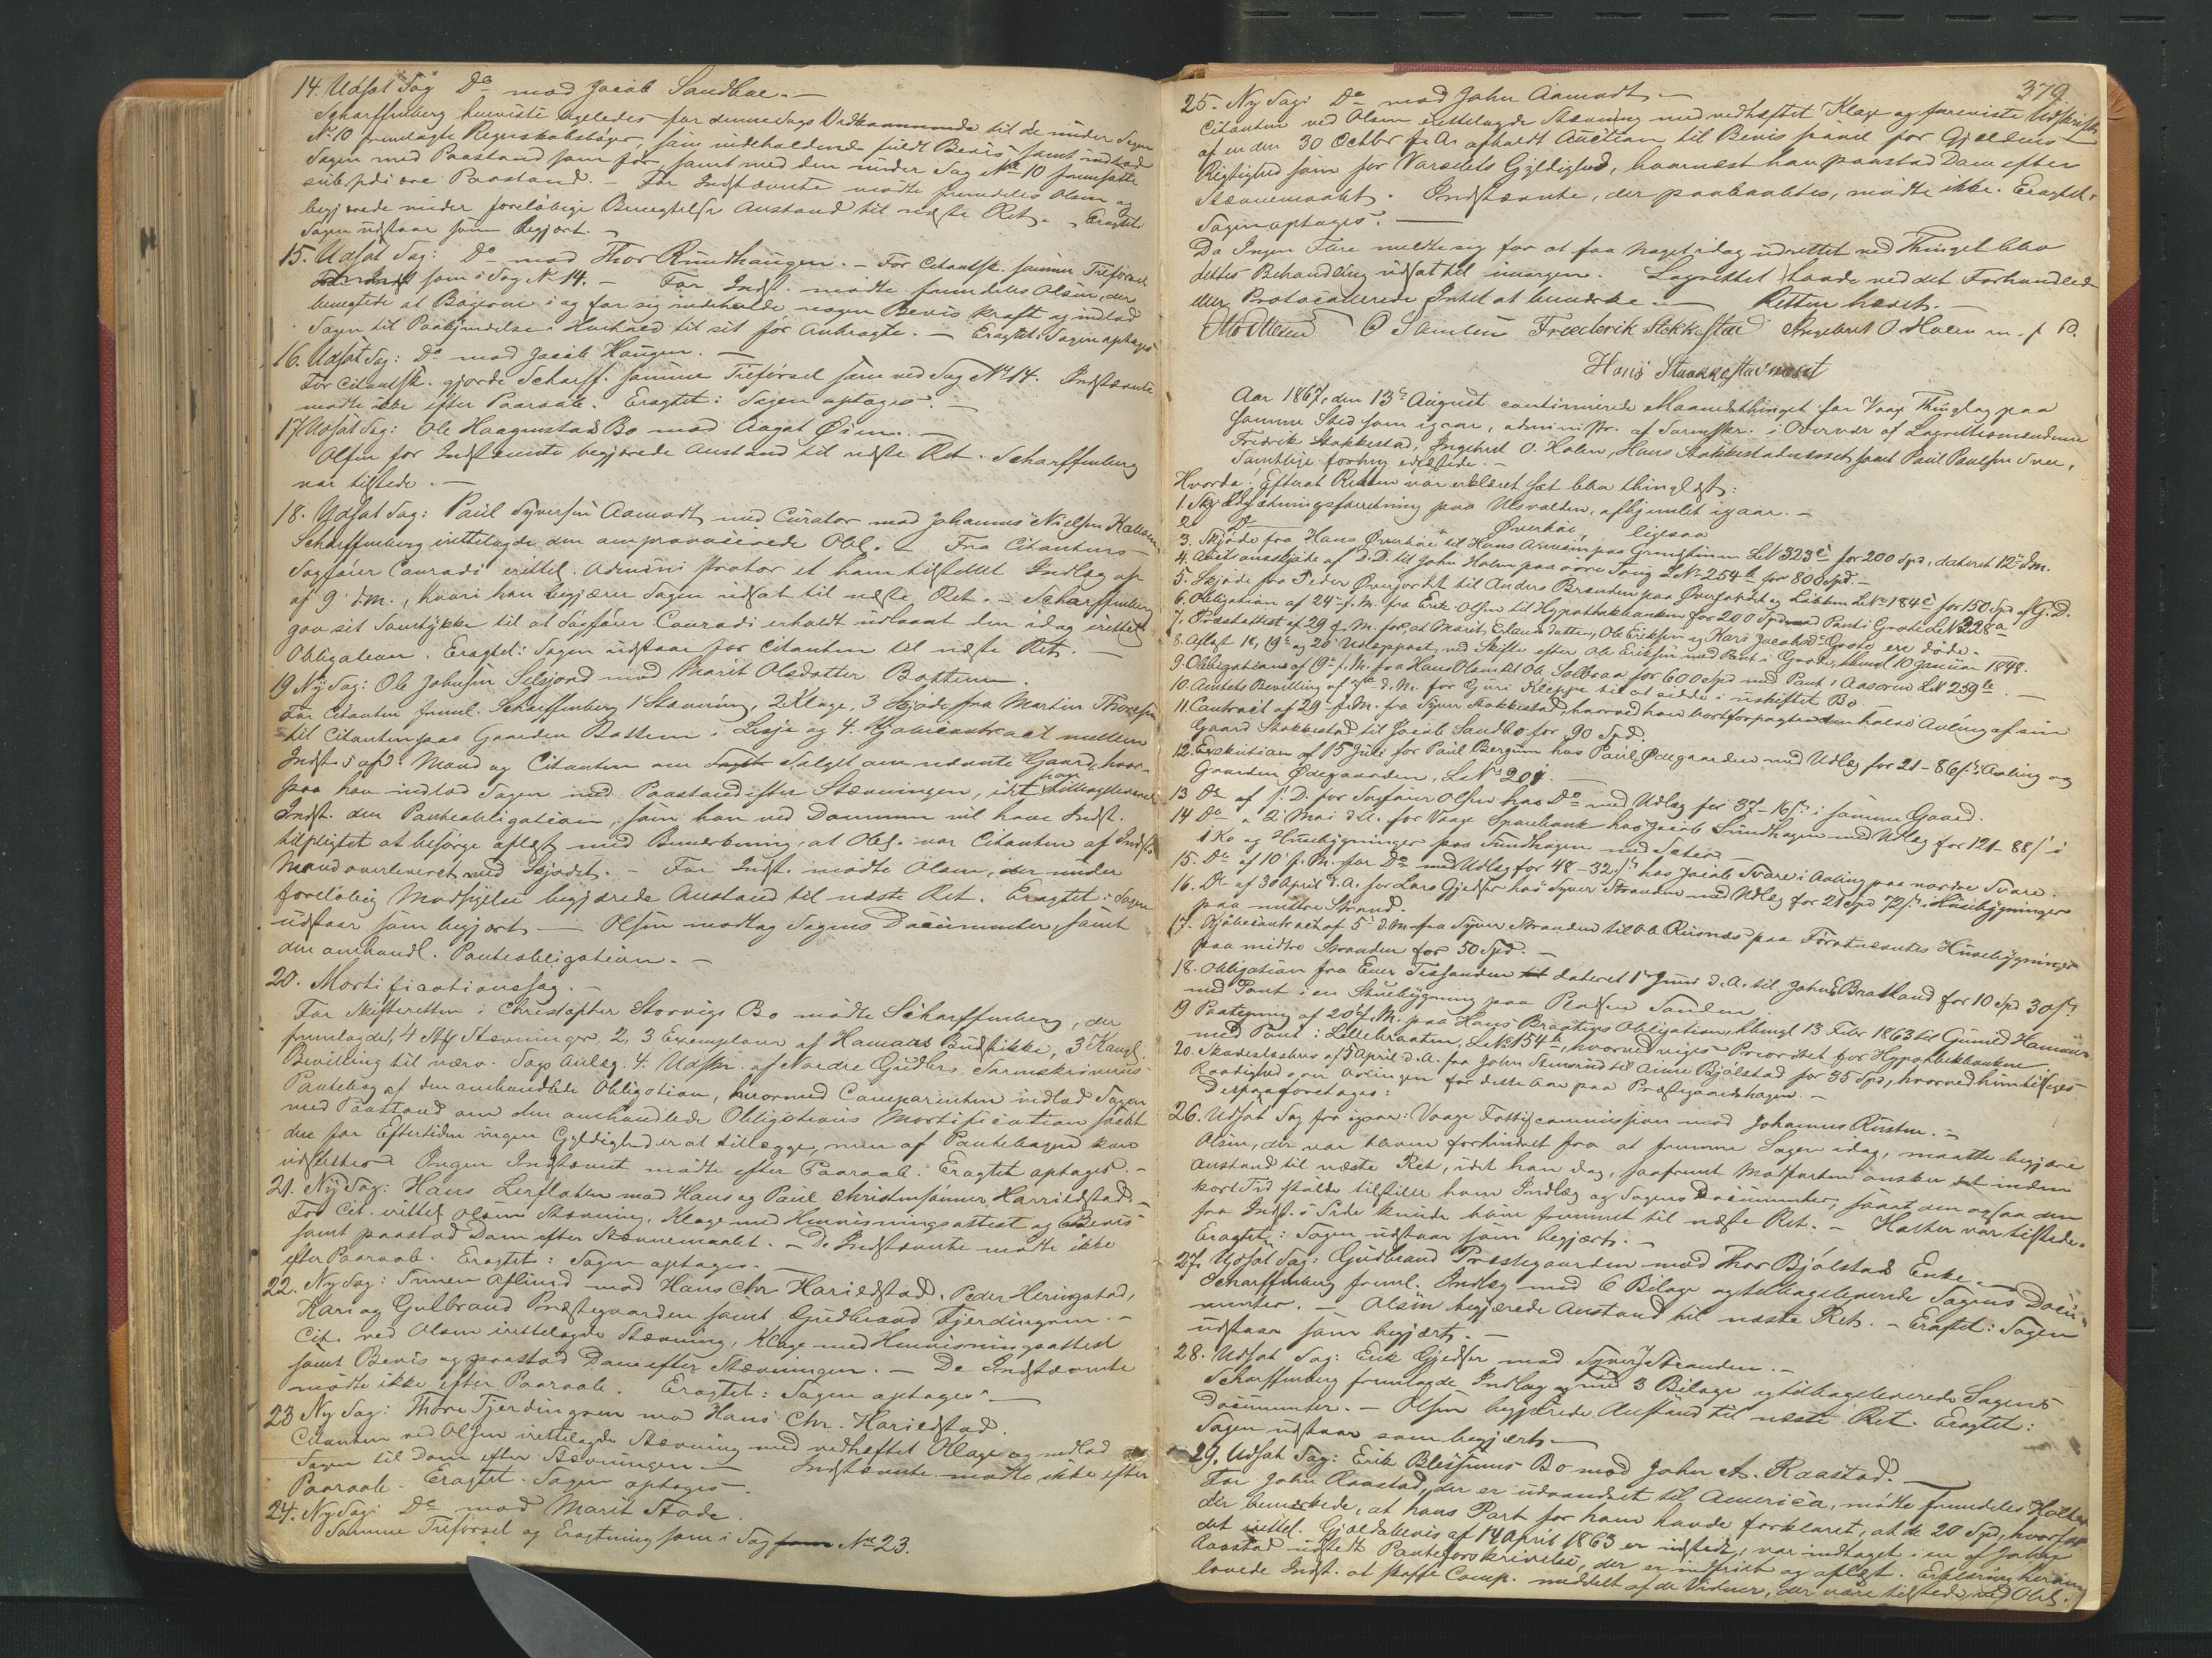 14. Udsat Sag Do mod Jacob Sandboe. —
Scharffenberg henviste ligeledes for denne Sags Vedkommende til de under Sagen
No 10 fremlagte Regnskabsbøger, som indeholdende fuldt Beviis samt indlod
Sagen med Paastand som før, samt med den under Sag No 10 fremsatte
subsidiære Paastand. — For Indstævnte mødte fremdeles Olsen og
begjærede under foreløbige Benegtelse Anstand til næste Ret. — Eragtet:
Sagen udstaar som begjært. —
15. Udsat Sag: Do mod Thor Rundhaugen. — For Citantsk. samme Tilførsel
som i Sag No 14. — For Indst. mødte fremdeles Olsen, der
benegtede at Bøgerne i og for sig indeholde nogen Bevis kraft og indlod
Sagen til Paakjendelse i Henhold til sit før Anbragte. — Eragtet: Sagen optages
16. Udsat Sag: Do mod Jacob Haugen. —
For Citantsk. gjorde Scharff. samme Tilførsel som ved Sag No 14. Indstævnte
mødte ikke efter Paaraab. Eragtet: Sagen optages. —
17. Udsat Sag: Ole Haagenstads Bo mod Aagot Øien. —
Olsen for Indstævnte begjærede Anstand til næste Ret. Scharffenberg
var tilstede. —
18. Udsat Sag: Paul Syversen Aamodt med Curator mod Johannes Nielsen
Scharffenberg irettelagde den omprovocerede Obl. — Fra Citantens
Sagfører Conradi irettel. Administrator et ham tilstillet Indlæg af
af 9 d.M., hvori han begjærer Sagen udsat til næste Ret. — Scharffenberg
gav sit Samtykke til at Sagfører Conradi erholdt udlaant den idag irettel.
Obligation. Eragtet: Sagen udstaar for Citanten til næste Ret. —
19 Ny Sag: Ole Johnsen Selsjord mod Marit Olsdatter Bottem.
For Citanten freml. Scharffenberg 1 Stævning, 2 Klage, 3 Skjøde fra Martin Thoresen
til Citanten paa Gaarden Bottem i Lesje og 4. Kjøbecontract mellem
Indst.s afd. Mand og Citanten om Salget om nævnte Gaard, hvor-
paa han indlod Sagen med Paastand efter Stævningen, idet han tilbageleverede
Indst. den Panteobligation, som han ved Dommen vil have Indst.
tilpligtet at besørge aflæst med Bemærkning, at Obl. var Citanten af Indst.s
Mand overleveret ved Skjødet. — For Indst. mødte Olsen, der under
foreløbig Modsigelse begjærede Anstand til næste Ret. Eragtet: Sagen
udstaar som begjært — Olsen modtog Sagens Documenter, samt
den omhandl. Panteobligation. —
20. Mortificationssag. —
For Skifteretten i Christopher Storvigs Bo mødte Scharffenberg, der
fremlagde 1, 4 Stk Stævninger, 2, 3 Exemplarer af Hamars Budstikke, 3 Kongl.
Bevilling til nærv. Sags Anlæg. 4. Udskr. af Nordre Gudbrs. Sorenskriveries
Pantebog af den omhandlede Obligation, hvormed Comparenten indlod Sagen
med Paastand om den omhandlede Obligations Mortification saaat
den for Eftertiden ingen Gyldighed er at tillægge, men af Pantebogen kan
udslettes. Ingen Indstævnt mødte efter Paaraab. Eragtet optages. —
21. Ny Sag: Hans Lerfloten mod Hans og Paul Christensønner Harrildstad. —
For Cit. irettel. Olsen Stævning, Klage med Henvisningsattest og Beviis
samt paastod Dom efter Stævnemaalet. — De Indstævnte mødte ikke
efter Paaraab. Eragtet: Sagen optages. —
22. Ny Sag: Simen Aslund mod Hans Chr Harildstad. Peder Heringstad,
Kari og Gulbrand Præstegaarden samt Gudbrand Tjerdingren. —
Cit. ved Olsen irettelagde Stævning, Klage med Henvisningsattest
samt Beviis og paastod Dom efter Stævningen. — De Indstævnte
mødte ikke efter Paaraab. Eragtet: Sagen optages. —
23 Ny Sag: Thore Tjerdingren mod Hans Chr. Harildstad.
Citanten ved Olsen irettelagde Stævning med vedhæftet Klage og indlod
Sagen til Dom efter Stævningen — Indstævnte mødte ikke efter
Paaraab. Eragtet. Sagen optages.
24. Ny Sag: Do mod Marit Stade.
Samme Tilførsel og Eragtning som i Sag No 23.
379.
25. Ny Sag: Do mod John Aamodt. —
Citanten ved Olsen irettelagde Stævning med vedhæftet Klage og foreviste Udskrift
af en den 30 Octbr f. A. afholdt Auction til Beviis saavel for Gjældens
Rigtighed som for Varselets Gyldighed, hvornæst han paastod Dom efter
Stævnemaalet. Indstævnte, der paaraabtes, mødte ikke. Eragtet:
Sagen optages. —
Da Ingen Flere meldte sig for at faa Noget idag udrettet ved Thinget blev
dettes Behandling udsat til imorgen. Lagrettet havde ved det Forhandlede
eller Protocollerede Intet at bemærke. — Retten hævet. —
O Samlen Frederik Stokkestad Ingebret O. Holen m. f. P.
Hans Staakkestadnæset
Aar 1867, den 13de August continuerede Maanedsthinget for Vaage Thinglag paa
samme Sted som igaar, administr. af Sorenskr. i Overvær af Lagrettesmændene
Fredrik Stokkestad, Ingebret O. Holen, Hans Stokkestadnæset samt Paul Paulsen Svee,
samtlige forhen edfæstede. —
Hvorda: Efterat Retten var erklæret sat blev thinglæst:
1. Skyldsætningsforretning paa Ulsvolden, afhjemlet igaar. —
2. Do — Øverhøe, ligesaa
3. Skjøde fra Hans Øverhøe til Hans Arnesen paa Grindstuen LNo 323c for 200 Spd, dateret 12te d.M.
4. Auctionsskjøde af D.D. til John Holen paa øvre Tong LNo 254b for 800 Spd. —
5. Skjøde fra Peder Øvergordet til Anders Brenden paa Øverjordet og Løkken LNo 184c for 150 Spd af G.D.
6. Obligation af 24 f. M. fra Erik Olsen til Hypothekbanken for 200 Spd med Pant i Grote LNo 228a
7. Præsteattest af 29 f. M. for, at Marit Erlandsdatter, Ole Eriksen og Kari Jacobsd. Grote ere døde. —
8. Aflæst 18, 19 og 20 Udlægspost, ved Skifte efter Ole Eriksen med Pant i Grote, thingl 10 Januar 1848.
9. Obligation af 19 f. M. fra Hans Olsen til Ole Solbraa for 600 Spd med Pant i Aasoren LNo 259b. —
10. Amtets Bevilling af 7de d.M. for Guri Kleppe til at sidde i uskiftet Bo.
11. Contract af 29 f. M. fra Syver Stokkestad, hvorved han bortforpagter den halve Avling af sin
Gaard Stokkestad til Jacob Sandbo for 90 Spd.
12. Execution af 15 Juli for Paul Bergum hos Paul Ødegaarden med Udlæg for 21 – 86 s i Avling og
Gaarden Ødegaarden, LNo 201. —
13 Do af s. D. for Sagfører Olsen hos Do med Udlæg for 37 – 16 s i samme Gaard.
14 Do a 2 Mai d.A. for Vaage Sparebank hos Jacob Sundhagen med Udlæg for 121 – 88 s i
1 Ko og Huusbygninger paa Sundhagen med Sæter. —
15. Do af 10 f. M. for Do med Udlæg for 48 – 32 s hos Jacob Svare i Avling paa nordre Svare.
16. Do af 30 April d. A. for Lars Gjedser hos Syver Stranden med Udlæg for 21 Spd 72 s i Huusbygninger
paa midtre Strand.
17. Kjøbecontract af 5 d. M. fra Syver Stranden til Ole Riisnæs paa Førstnævntes Huusbygninger
paa midtre Stranden for 50 Spd. —
18. Obligation fra Ener Tessanden dateret 1 Juni d. A. til John Bratland for 10 Spd 30 s
med Pant i en Stuebygning paa Pladsen Sanden.
19 Paategning af 20 f. M. paa Hans Braatens Obligation, thlængt 13 Febr 1863 til Gunild Hammer
med Pant i Lillebraaten, LNo 154b, hvorved viges Prioritet for Hypothekbanken
20. Skadesløsbrev af 5 April d. A. fra John Stensrud til Anne Bjølstad for 35 Spd, hvorved hun tilsiges
Raadighed over Avlingen for dette Aar paa Præstegaardshagen. —
Derpaa foretoges:
26. Udsat Sag fra igaar: Vaage Fattigcommission mod Johannes Rusten. —
Olsen, der var bleven forhindret fra at fremme Sagen idag, maatte begjære
Anstand til næste Ret, idet han dog, saafremt Modparten ønsker det inden
kort Tid skulde tilstille ham Indlæg og Sagens Documenter, saaat den ogsaa den
fra Indst.s Side kunde blive fremmet til næste Ret. — Holter var tilstede.
Eragtet: Sagen udstaar som begjært. —
27. Udsat Sag: Gudbrand Præstegaarden mod Thor Bjølstads Enke. —
Scharffenberg freml. Indlæg med 6 Bilage og tilbageleverede Sagens Docu-
menter. — Olsen begjærede Anstand til næste Ret. — Eragtet: Sagen
udstaar som begjært. —
28. Udsat Sag: Erik Gjedser mod Syver Stranden. —
Scharffenberg fremlagde Indlæg og med 3 Bilage og tilbageleverede Sagens
Documenter. — Olsen begjærede Anstand til næste Ret. Eragtet:
Sagen udstaar som begjært. —
29. Udsat Sag: Erik Blessums Bo mod John A. Raastad. —
For John Raastad, der er udvandret til America, mødte fremdeles Holter
der bemærkede, at hans Part for ham havde forklaret, at de 20 Spd, hvorfor
det irettel. Gjældsbevis af 14 April 1863 er udstedt, var indtaget i en af John
Raastad udstedt Panteforskrivelse, der er indfriet og aflæst. Erklæring herom
lovede Indst. at skaffe Comp. meddelt af de Vidner, der vare tilstede ved Obl.